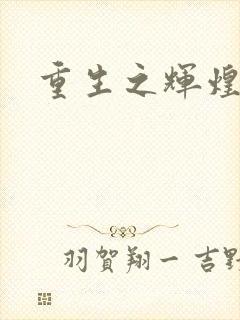 重生之輝煌
羽賀翔一 吉野